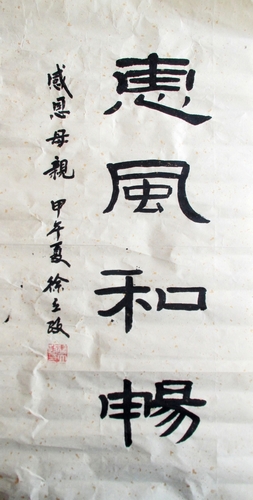 惠風和暢
感恩母親 甲午夏 徐立政